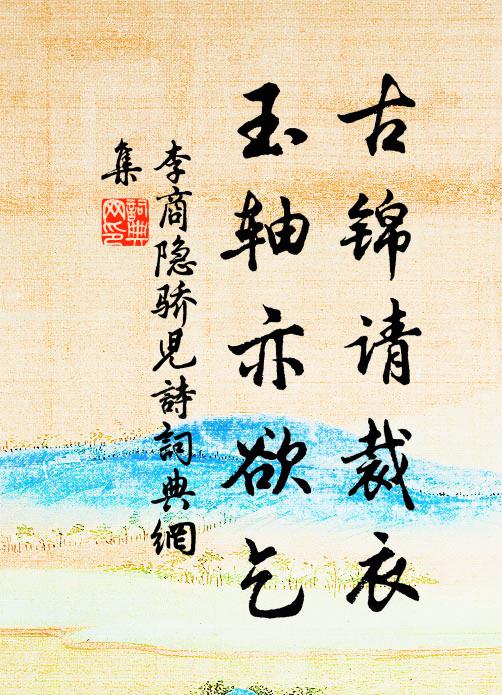 古锦请裁衣
玉轴亦欲乞
李商隐骄児詩詞典網
集
詞典网印